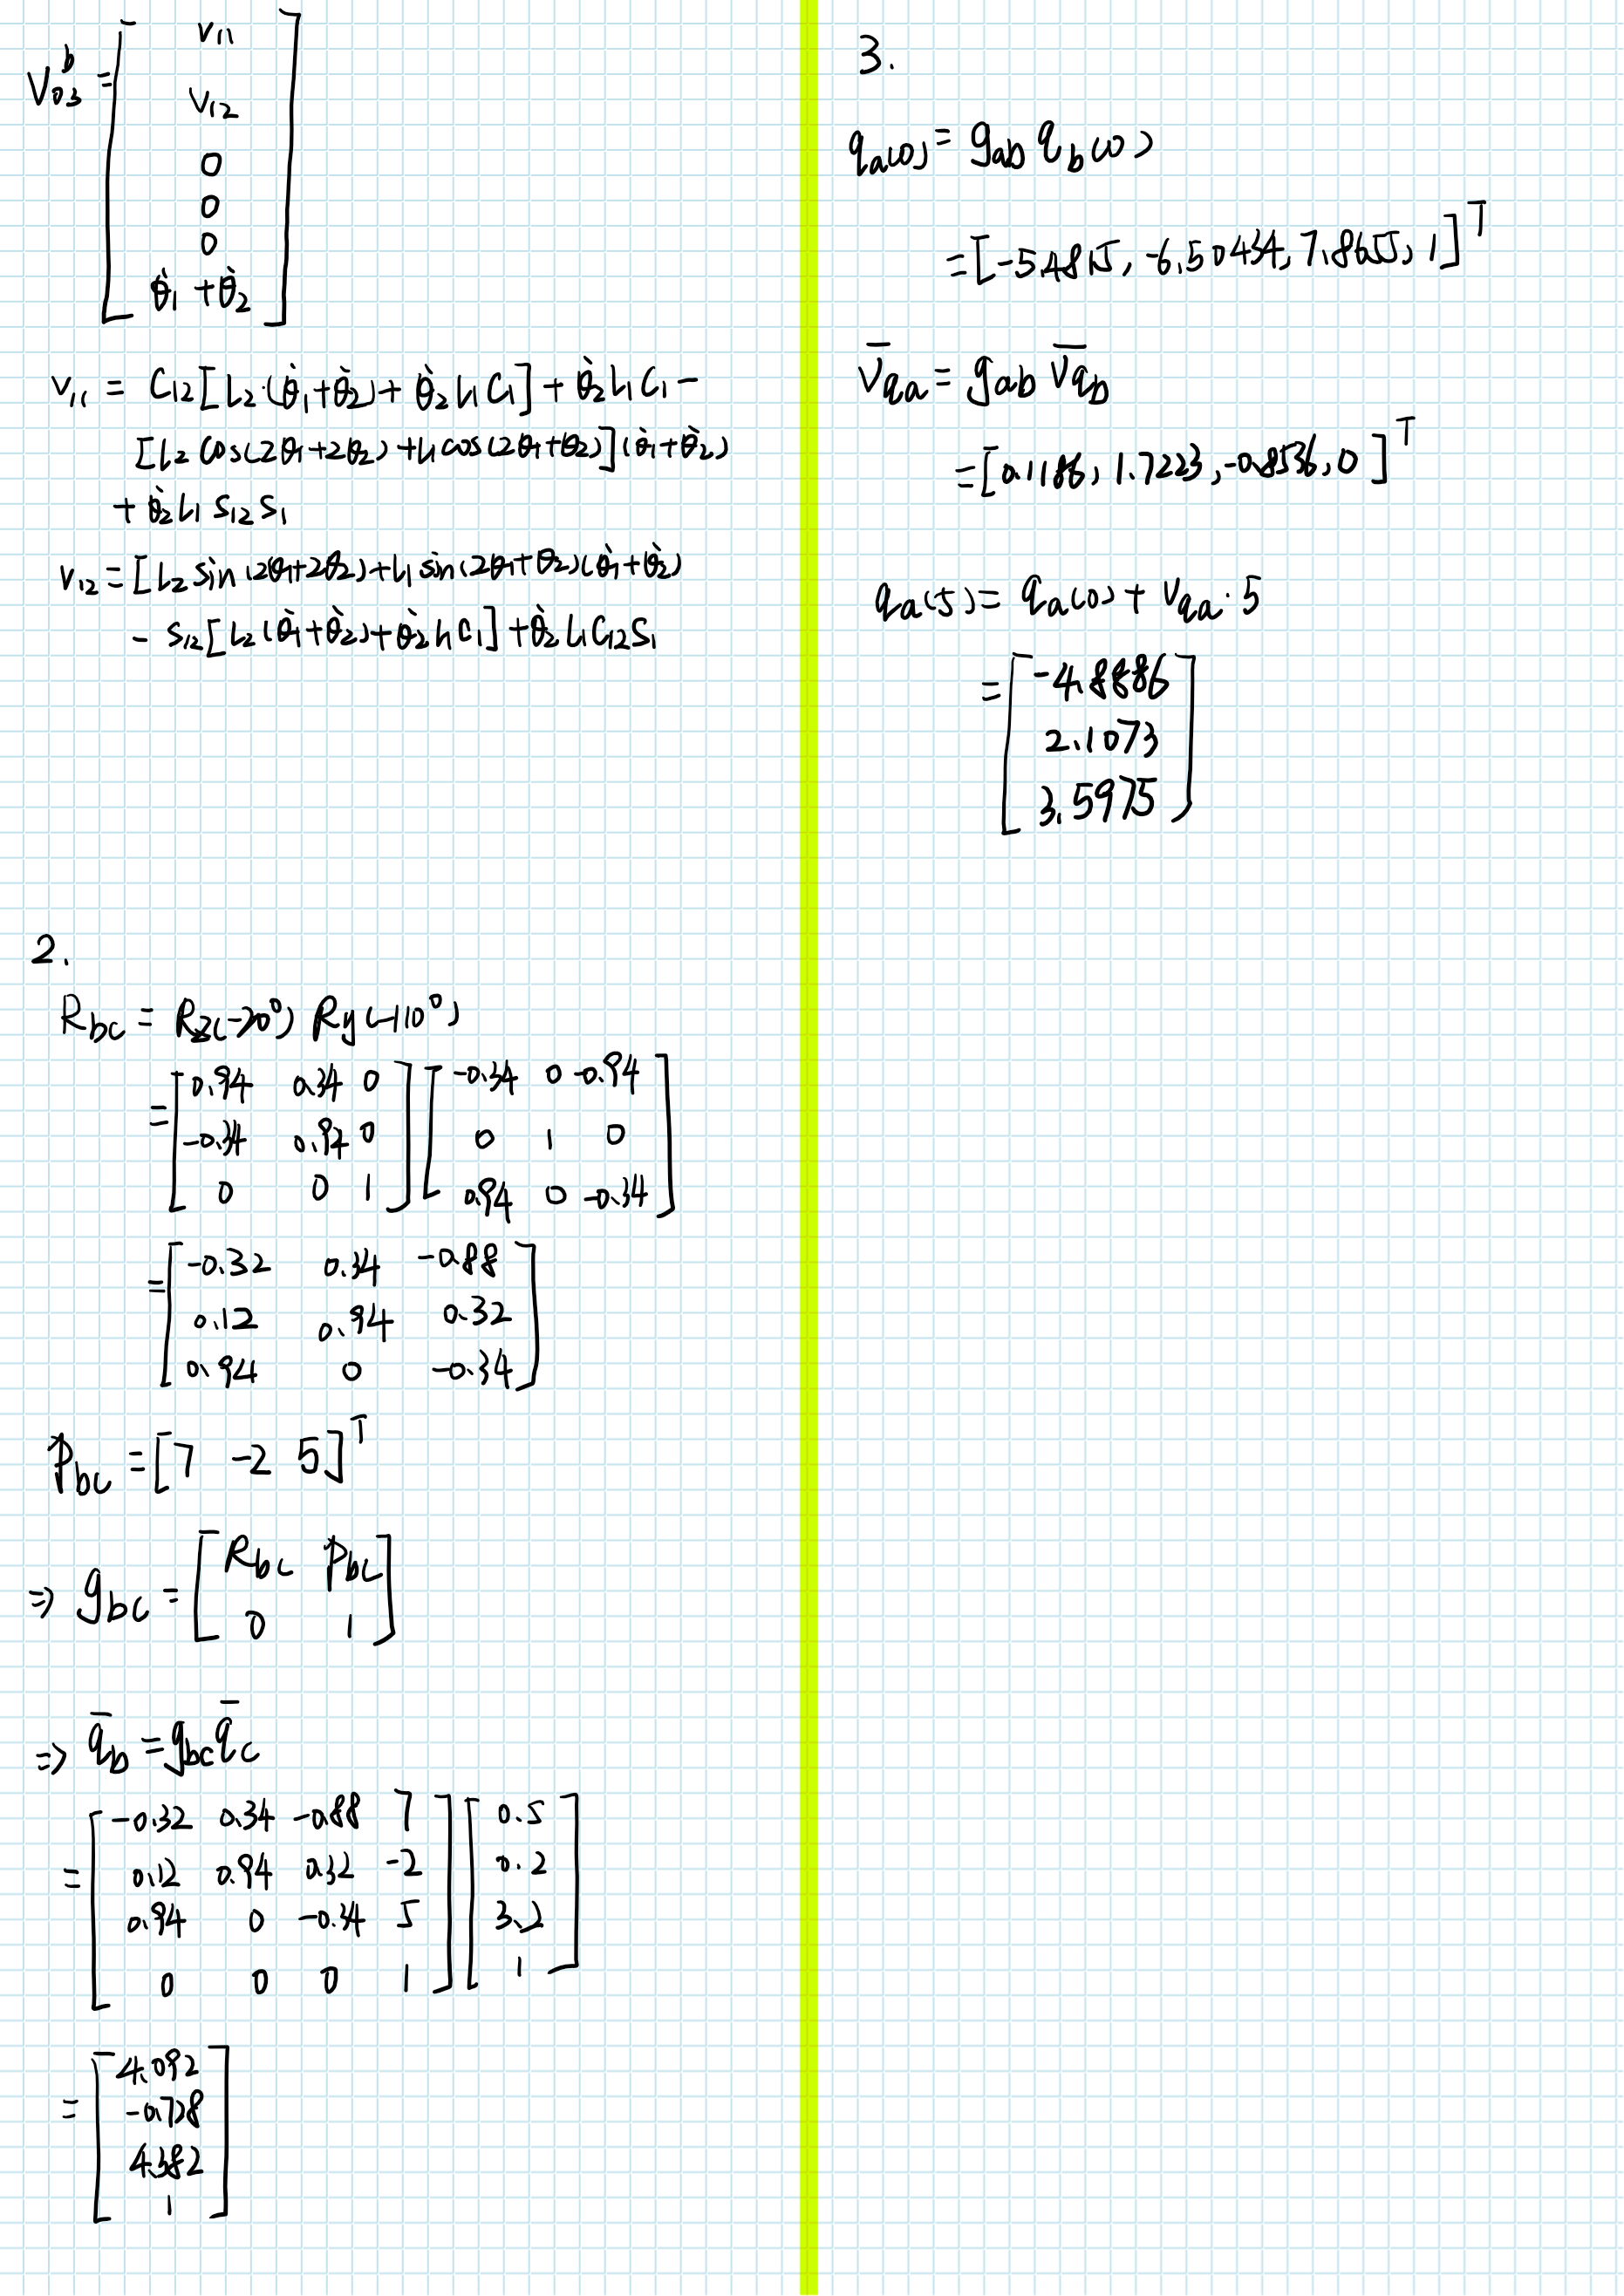 V^b_03 = [ v11
v12
0
0
0
θ̇1 + θ̇2 ]
v11 = C12[L2·(θ̇1+θ̇2)+ θ̇2 L1 C1] + θ̇2 L1 C1 −
[L2 cos(2θ1+2θ2)+L1 cos(2θ1+θ2)](θ̇1+θ̇2)
+ θ̇2 L1 S12 S1
v12 = [L2 sin(2θ1+2θ2)+L1 sin(2θ1+θ2)(θ̇1+θ̇2)
− S12[L2(θ̇1+θ̇2)+θ̇2 L1 C1] + θ̇2 L1 C12 S1
2.
Rbc = Rz(-20°) Ry(-110°)
= [ 0.94 0.34 0 ] [ -0.34 0 -0.94 ]
[ -0.34 0.94 0 ] [ 0 1 0 ]
[ 0 0 1 ] [ 0.94 0 -0.34 ]
= [ -0.32 0.34 -0.88
0.12 0.94 0.32
0.94 0 -0.34 ]
Pbc = [7 -2 5]^T
⇒ gbc = [ Rbc Pbc
0 1 ]
⇒ q̄b = gbc q̄c
= [ -0.32 0.34 -0.88 7 ] [ 0.5 ]
[ 0.12 0.94 0.32 -2 ] [ 0.2 ]
[ 0.94 0 -0.34 5 ] [ 3.2 ]
[ 0 0 0 1 ] [ 1 ]
= [ 4.092
-0.728
4.382
1 ]
3.
qa(0) = gab qb(0)
= [-5.4815, -6.50434, 7.8655, 1]^T
V̄qa = gab V̄qb
= [0.1186, 1.7223, -0.8536, 0]^T
qa(5) = qa(0) + Vqa · 5
= [ -4.8886
2.1073
3.5975 ]